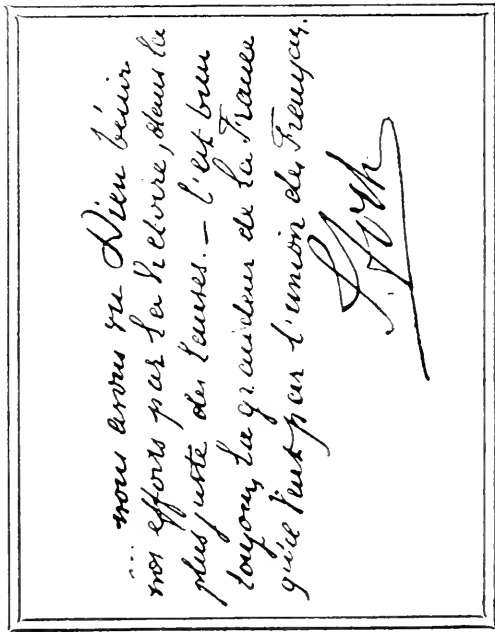 ... nous avons vu Dieu bénir
nos efforts par la Victoire, dans la
plus juste des Causes. — C'est bien
toujours la grandeur de la France
qu'il veut par l'union des Français.
F. Foch